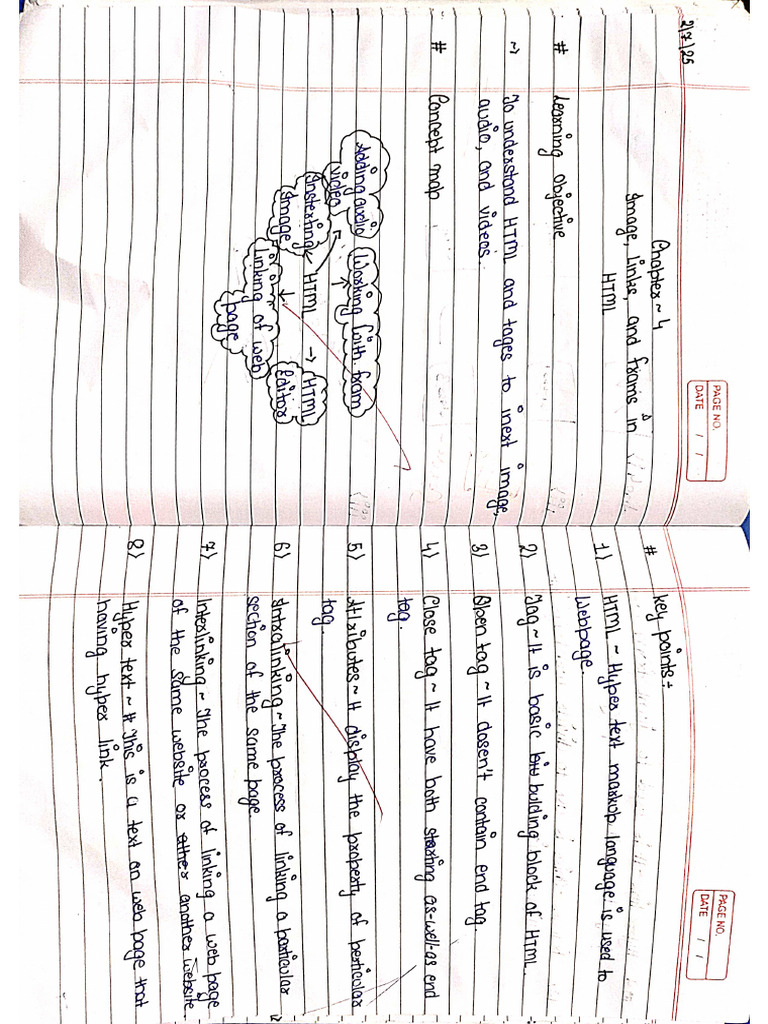 2/7/25
PAGE NO.
DATE / /
Chapter ~ 4
Image, links, and frams in
HTML
# Learning Objective
~) To understand HTML and tages to inext image,
audio, and videos.
# Concept map
Adding audio
video
Working with fram
Instexting
Image
HTML
HTML
Editor
linking of web
page
PAGE NO.
DATE / /
# key points:-
1) HTML ~ Hyper text markup language is used to
Webpage.
2) Tag ~ It is basic bulding block of HTML.
3) Open tag ~ It dosen't contain end tag
4) Close tag ~ It have both starting as-well-as end
tag.
5) Attributes ~ It display the property of perticular
tag.
6) Intralinking ~ The process of linking a perticular
section of the same page
7) Interlinking ~ The process of linking a web page
of the same website or other another website.
8) Hyper text ~ It This is a text on web page that
having hyper link.